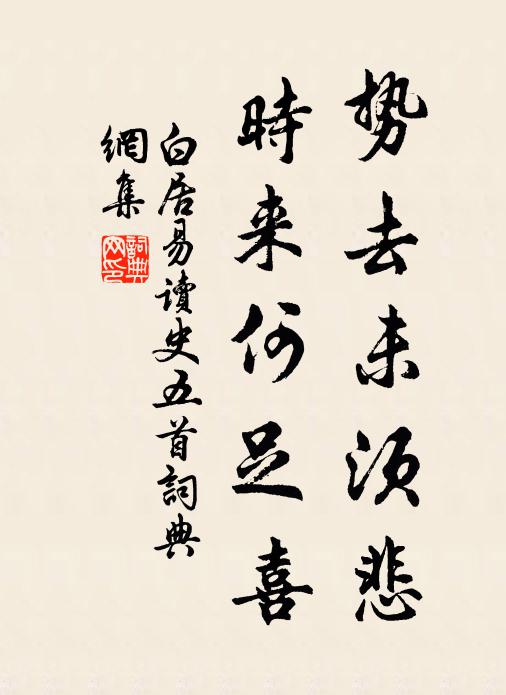 势去未须悲
時来何足喜
白居易讀史五首詞典
網集
詞典網印